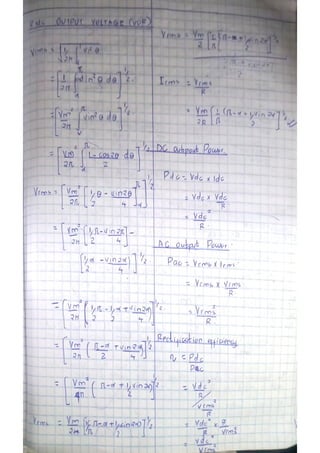 RMS OUTPUT VOLTAGE (VOR)
Vrms = [1/2π ∫ v dθ
= [1/2π ∫ sin²θ dθ]^1/2
= [Vm²/2π ∫ sin²θ dθ]^1/2
= [Vm²/2π ∫ 1-cos2θ/2 dθ]^1/2
Vrms = [Vm²/2π [1/2 θ - sin2θ/4]]^1/2
= [Vm²/2π {1/2 π - sin2π/4} -
{1/2 α - sin2α/4}]^1/2
= [Vm²/2π {1/2 π - 1/2 α + sin2α/4}]^1/2
= [Vm²/2π {π-α/2 + sin2α/4}]^1/2
= [Vm²/4π (π-α + 1/2 sin2α)]^1/2
Vrms = Vm/2 [1/π (π-α + 1/2 sin2α)]^1/2
Vrms = Vm/2 [1/π [π-α + 1/2 sin2α]^1/2
Irms = Vrms/R
= Vm/2R [1/π (π-α + 1/2 sin2α)]^1/2
DC output Power
Pdc = Vdc x Idc
= Vdc x Vdc/R
= Vdc²/R
AC output Power
Pac = Vrms x Irms
= Vrms x Vrms/R
= Vrms²/R
Rectification efficiency
η = Pdc/Pac
= Vdc²/R / Vrms²/R
= Vdc²/R x R/Vrms²
= Vdc²/Vrms²